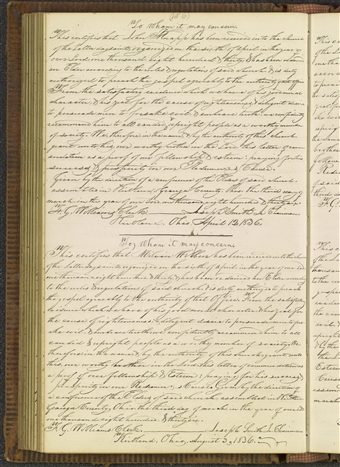 To Whom it may concern
This certifies that John Sharp has been received into the church
of the Latter day saints organized on the sixth of April in the year of
our Lord one thousand eight hundred & thirty & has been ordained
an Elder according to the rules & regulations of said church & is duly
authorized to preach the gospel agreeably to the authority of that office
From the satisfactory evidence which we have of his good moral
character & his zeal for the cause of righteousness & diligent desire
to persuade men to forsake evil & embrace truth we confidently
recommend him to all candid & upright people as a worthy member
of society. We therefore in the name & by the authority of this church
grant unto this our worthy brother in the Lord this letter of commendation
as a proof of our fellowship & esteem praying for his
success & prosperity in our Redeemer's Cause.
Given by the direction of a conference of the Elders of said church
assembled in Kirtland Geauga County Ohio the third day of
March in the year of our Lord one thousand eight hundred & thirty six
F. G. Williams Clerk Joseph Smith Jr Chairman
Kirtland Ohio April 12, 1836
To Whom it may concern
This certifies that Wilson W. has been received into the church
of the Latter day saints organized on the sixth of April in the year of our Lord
one thousand eight hundred & thirty & has been ordained an Elder according
to the rules & regulations of said church & is duly authorized to preach
the gospel agreeably to the authority of that Office From the satisfactory
evidence which we have of his good moral character & his zeal for
the cause of righteousness & diligent desire to persuade men to forsake
evil & embrace truth we confidently recommend him to all
candid & upright people as a worthy member of society. We
therefore in the name & by the authority of this church grant unto
this our worthy brother in the Lord this letter of commendation
as a proof of our fellowship & Esteem praying for his success
& prosperity in our Redeemer's Cause. Given by the direction of
a conference of the Elders of said church assembled in Kirtland
Geauga County Ohio the third day of March in the year of our Lord
one thousand eight hundred & thirty six
F. G. Williams Clerk Joseph Smith Jr Chairman
Kirtland, Ohio, August 3, 1836